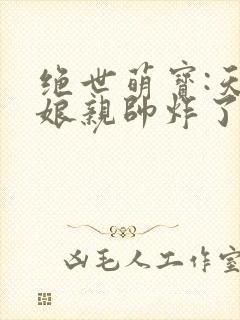 绝世萌寶:天
娘親帥炸了
凶毛人工作室